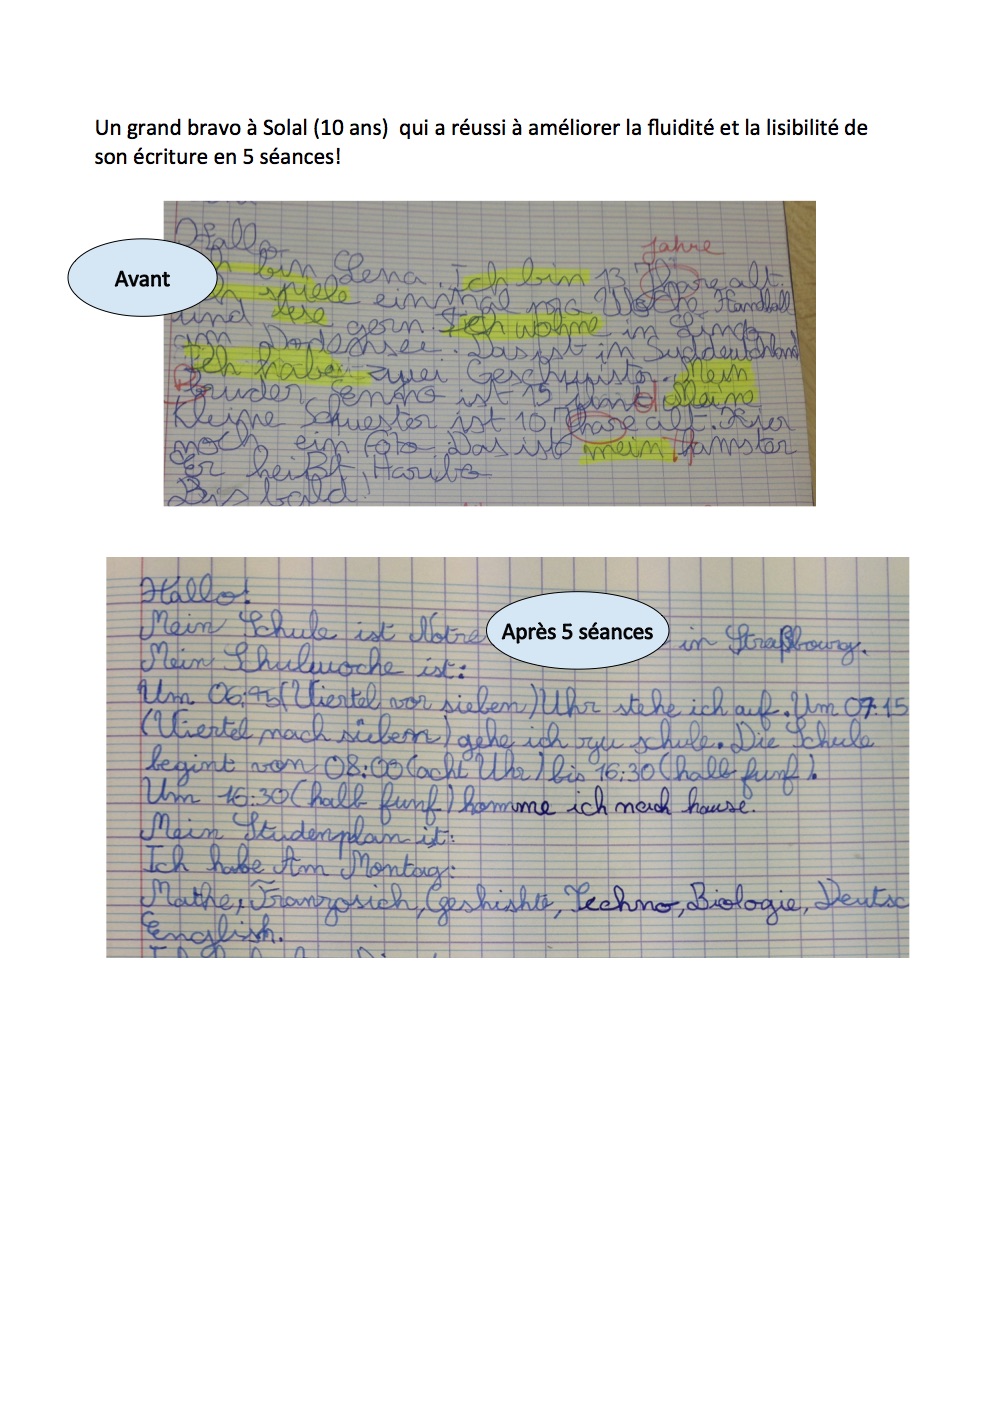 Un grand bravo à Solal (10 ans) qui a réussi à améliorer la fluidité et la lisibilité de
son écriture en 5 séances!
Hallo
Jahre
Avant
bin Lena. Ich bin 13 Jhare alt.
spiele einmal pro Woche Handball
und lese gern. Ich wohne in
am Bodeghsee. Das ist in Süddeutchland
Ich habe zwei Geschwister. Mein
Bruder ist 15 und d Meine
Kleine Schwester ist 10 Jhare alt. Hier
noch ein Foto. Das ist mein Hamster
Er heißt Haribo
Bis bald
Hallo!
Mein Schule ist Notre Après 5 séances in Straßbourg.
Mein Schulwoche ist:
Um 06:45 (Viertel vor siebem) Uhr stehe ich auf. Um 07:15
(Viertel nach siebem) gehe ich zu schule. Die Schule
begint von 08:00 (acht Uhr) bis 16:30 (halb funf).
Um 16:30 (halb funf) komme ich nach hause.
Mein Studenplan it:
Ich habe Am Montag:
Mathe, Franzosich, Geshishte, Techno, Biologie, Deutsc
English.